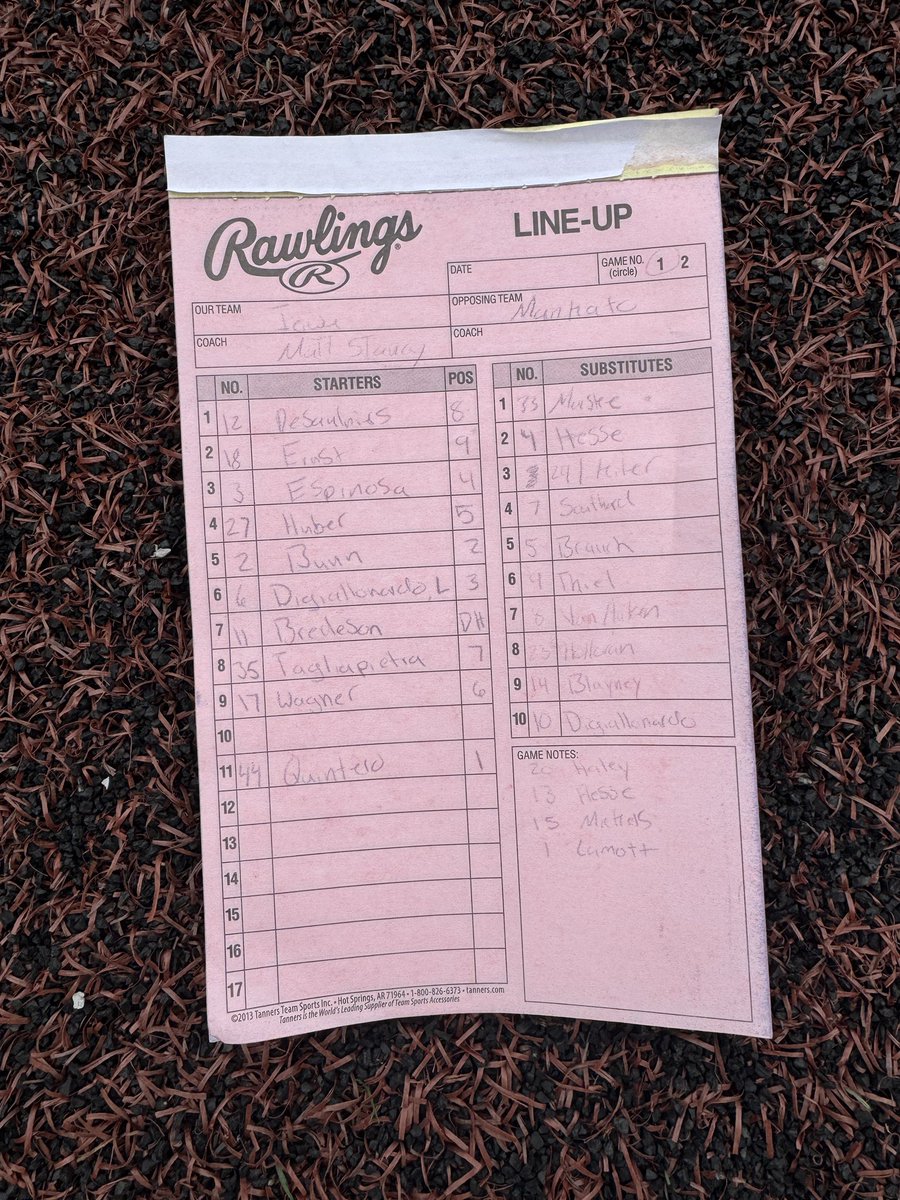 Rawlings®
R
LINE-UP
DATE
GAME NO. (circle) 1 2
OUR TEAM Iowa
OPPOSING TEAM Mankato
COACH Matt
COACH
NO. STARTERS POS
1 12 8
2 18 Ernst 9
3 3 Espinosa 4
4 27 Huber 5
5 2 Bunn 2
6 6 Digiallonardo, L 3
7 11 Bredeson DH
8 35 Tagliapietra 7
9 17 Wagner 6
10
11 44 Quintero 1
12
13
14
15
16
17
NO. SUBSTITUTES
1 33
2 4 Hesse
3 24
4 7
5 5
6 4 Thiel
7
8 Halloran
9 14 Blayney
10 10 Digiallonardo
GAME NOTES:
20 Haley
13 Hesse
15
1 Lamott
©2013 Tanners Team Sports Inc. • Hot Springs, AR 71964 • 1-800-826-6373 • tanners.com
Tanners is the World's Leading Supplier of Team Sports Accessories